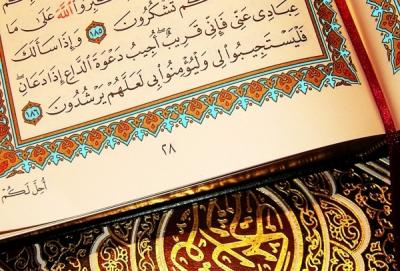 ـكَبِّرُوا۟ ٱللَّهَ عَلَىٰ مَا
ـكُمْ تَشْكُرُونَ ١٨٥ وَإِذَا سَأَلَكَ
عِبَادِى عَنِّى فَإِنِّى قَرِيبٌ ۖ أُجِيبُ دَعْوَةَ ٱلدَّاعِ إِذَا دَعَانِ
فَلْيَسْتَجِيبُوا۟ لِى وَلْيُؤْمِنُوا۟ بِى لَعَلَّهُمْ يَرْشُدُونَ ١٨٦
٢٨
أُحِلَّ لَكُمْ